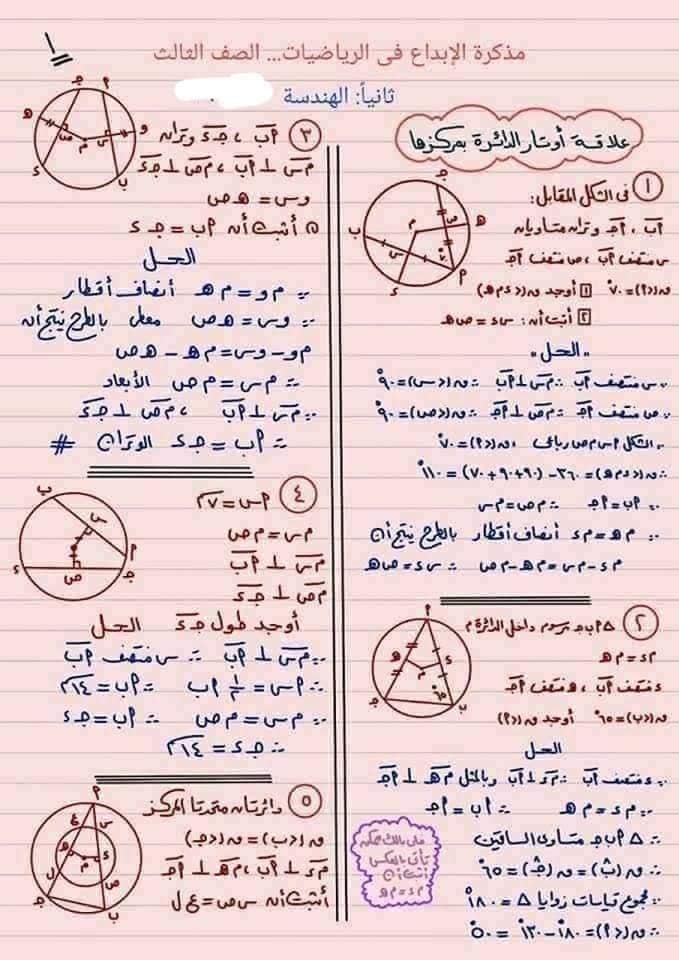 ١
مذكرة الإبداع فى الرياضيات... الصف الثالث
ثانياً: الهندسة
علاقة أوتار الدائرة بمركزها
١ فى الشكل المقابل:
أب ، أجـ وتران متساويان
س منتصف أب ، ص منتصف أجـ
ق(أ) = ٧٠° ١ أوجد ق(د م هـ)
٢ أثبت أن : س د = ص هـ
"الحل"
∵ س منتصف أب ∴ م س ⊥ أب ∴ ق(س) = ٩٠°
∵ ص منتصف أجـ ∴ م ص ⊥ أجـ ∴ ق(ص) = ٩٠°
∵ الشكل أ س م ص رباعى ، ق(أ) = ٧٠°
∴ ق(د م هـ) = ٣٦٠ - (٩٠ + ٩٠ + ٧٠) = ١١٠°
∵ أب = أجـ ∴ م ص = م س
∵ م هـ = م د أنصاف أقطار بالطرح ينتج أن
م د - م س = م هـ - م ص ∴ س د = ص هـ
٢ ∆ أ ب جـ مرسوم داخل الدائرة م
م د = م هـ
د منتصف أب ، هـ منتصف أجـ
ق(ب) = ٦٥° أوجد ق(أ)
الحل
∵ د منتصف أب ∴ م د ⊥ أب وبالمثل م هـ ⊥ أجـ
∵ م د = م هـ ∴ أب = أجـ
∴ ∆ أ ب جـ متساوى الساقين
∴ ق(ب) = ق(جـ) = ٦٥°
∵ مجموع قياسات زوايا ∆ = ١٨٠°
∴ ق(أ) = ١٨٠° - ١٣٠° = ٥٠°
خلى بالك ممكن
تأتى بالعكس
أثبت أن
م د = م هـ
٣ أب ، جـ د وتران
م س ⊥ أب ، م ص ⊥ جـ د
و س = هـ ص
أثبت أن أب = جـ د
الحل
∵ م و = م هـ أنصاف أقطار
∵ و س = هـ ص معطى بالطرح ينتج أن
م و - و س = م هـ - هـ ص
∴ م س = م ص الأبعاد
∵ م س ⊥ أب ، م ص ⊥ جـ د
∴ أب = جـ د الوتران #
٤ أ س = ٧سم
م س = م ص
م س ⊥ أب
م ص ⊥ جـ د
أوجد طول جـ د الحل
∵ م س ⊥ أب ∴ س منتصف أب
∴ أ س = ١/٢ أب ∴ أب = ١٤سم
∵ م س = م ص ∴ أب = جـ د
∴ جـ د = ١٤سم
٥ دائرتان متحدتا المركز
ق(ب) = ق(جـ)
م د ⊥ أب ، م هـ ⊥ أجـ
أثبت أن س ص = ع ل